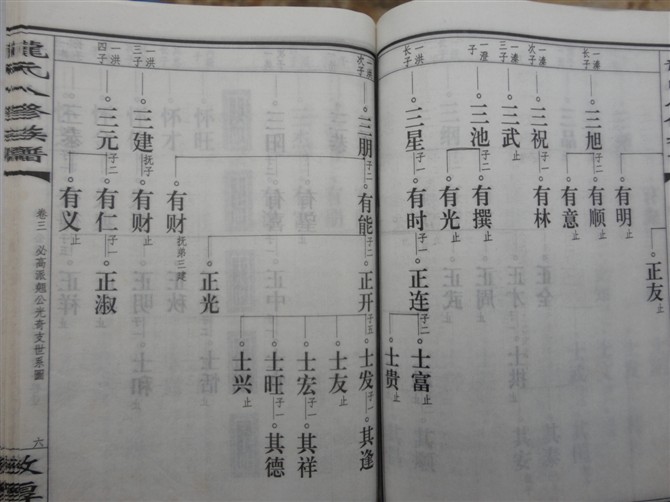 正友止
有明止
三旭子二
有顺止
有意止
次子
三祝子一
有林
三子
三武止
一澄子
三池子二
有撰止
有光止
一洪长子
三星子一
有时子一
正连子二
士富止
士贵止
一洪次子
三朋子二
有能子二
正开子五
士发子一
其逢
士友止
士宏子一
其祥
士旺子一
其德
士兴止
正光
有财抚弟三建
一洪三子
三建抚子
有财止
一洪四子
三元子二
有仁子一
正淑
有义止
龙氏八修族谱
卷三
必高派魁公光奇支世系圖
六
敦厚